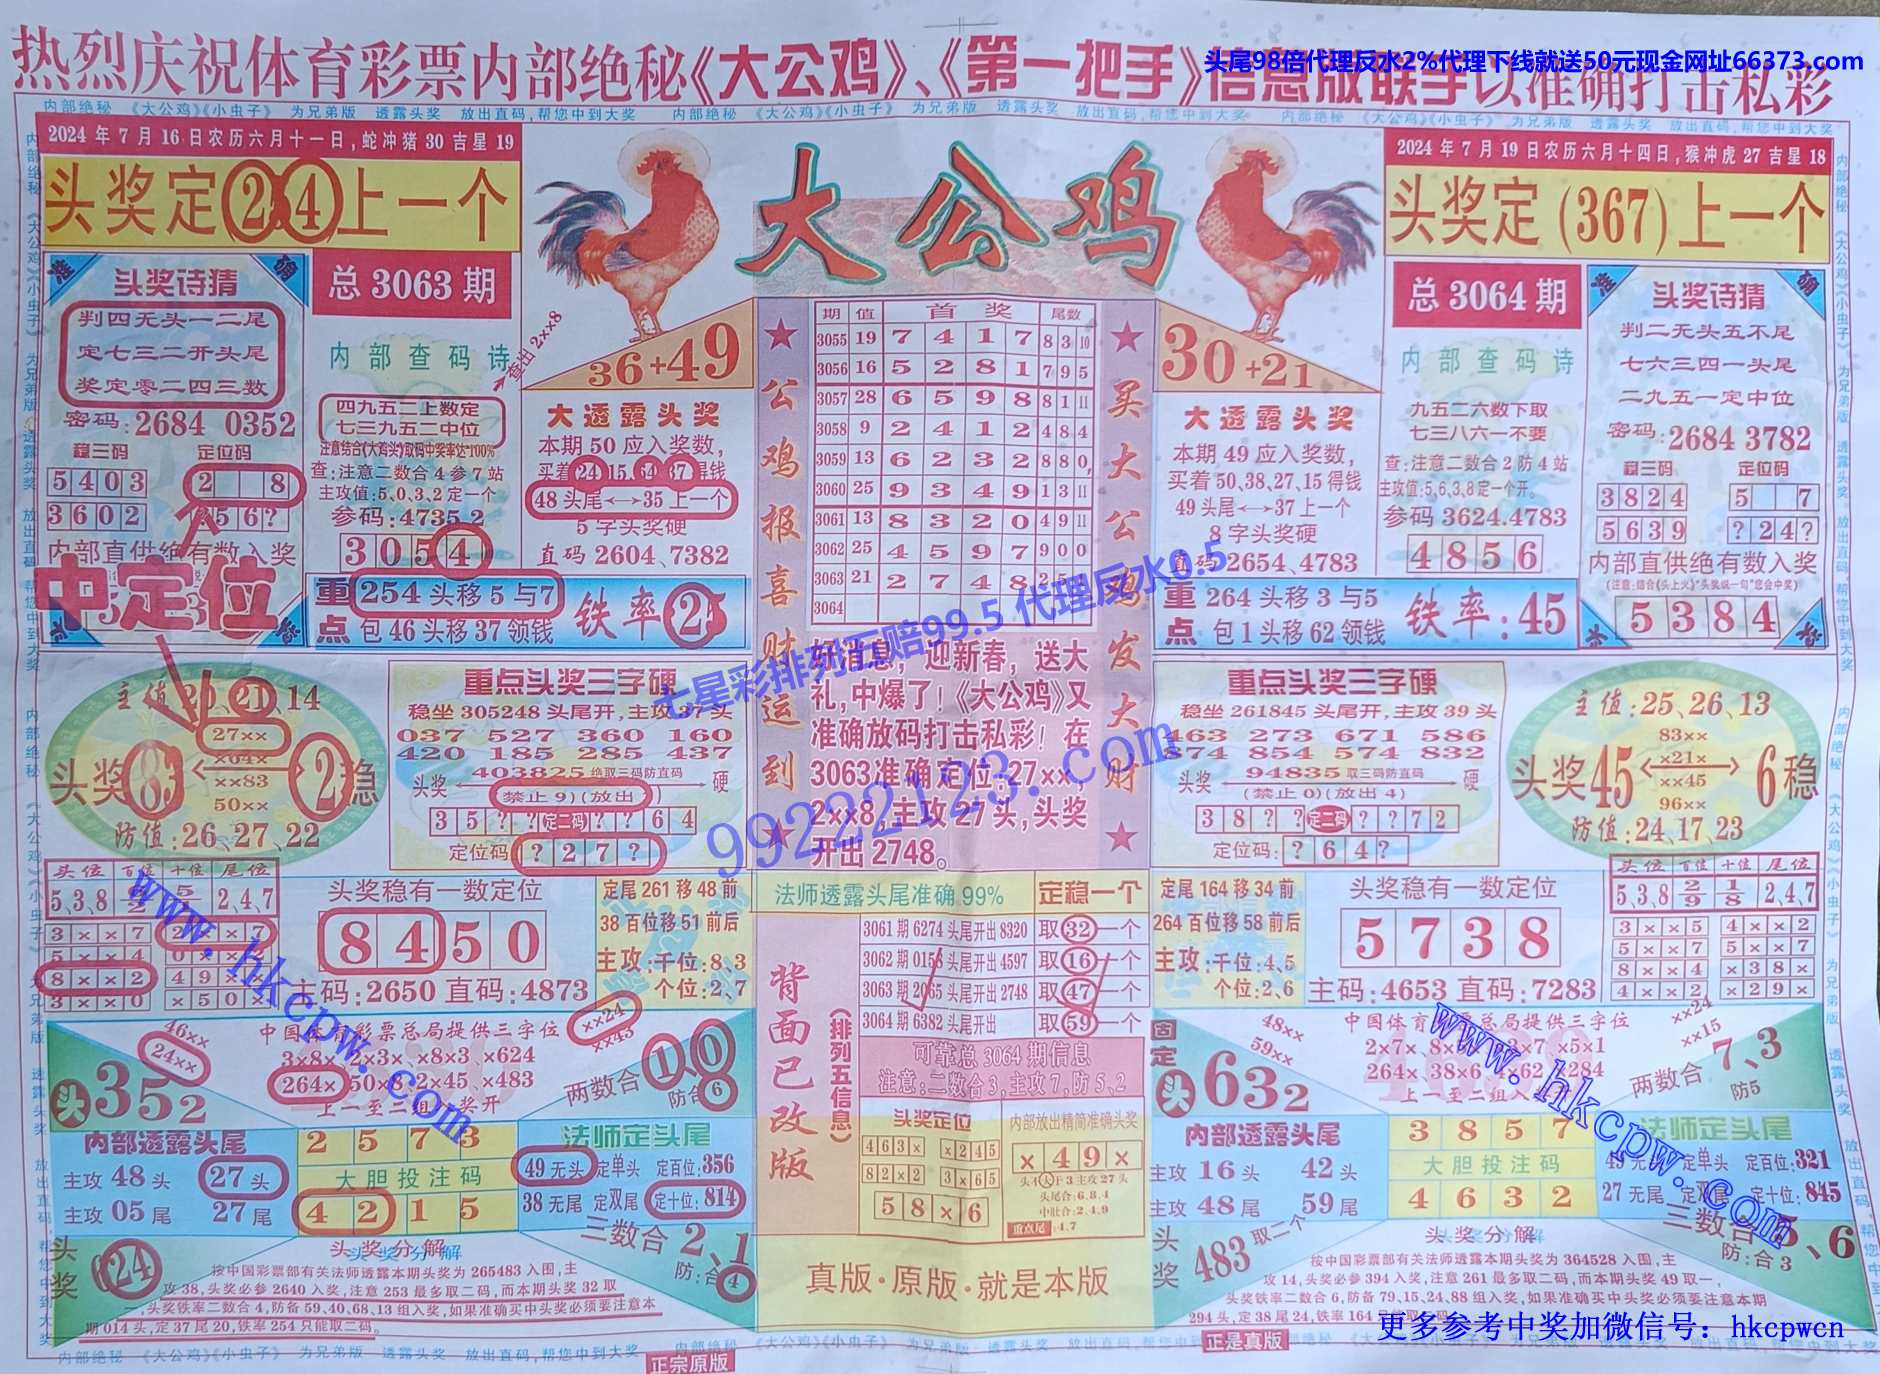 热烈庆祝体育彩票内部绝秘《大公鸡》、《第一把手》信息版联手以准确打击私彩
头尾98倍代理反水2%代理下线就送50元现金网址66373.com
内部绝秘 《大公鸡》《小虫子》 为兄弟版 透露头奖 放出直码,帮您中到大奖
2024年7月16日农历六月十一日,蛇冲猪30吉星19
头奖定24上一个
准 确
头奖诗猜
判四无头一二尾
定七三二开头尾
奖定零二四三数
密码:2684 0352
稳三码 定位码
5403
2 8
3602
?56?
内部直供绝有数入奖
中定位
总3063期
内部查码诗
查出2××8
四九五二上数定
七三九五二中位
注意结合《大鸡头》取码中奖率达100%
查:注意二数合4参7站
主攻值:5,0,3,2定一个
参码:4735.2
3054
36+49
大透露头奖
本期50应入奖数,
买着24,15,64,37得钱
48头尾↔35上一个
5字头奖硬
直码2604,7382
重点
254头移5与7
包46头移37领钱
铁率:25
大公鸡
★公鸡报喜财运到★
期 值 首奖 尾数
3055 19 7 4 1 7 8 3 10
3056 16 5 2 8 1 7 9 5
3057 28 6 5 9 8 8 1 11
3058 9 2 4 1 2 4 8 4
3059 13 6 2 3 2 8 8 0
3060 25 9 3 4 9 1 3 11
3061 13 8 3 2 0 4 9 11
3062 25 4 5 9 7 9 0 0
3063 21 2 7 4 8 2 5
3064
★买大公鸡发大财★
好消息，迎新春，送大
礼,中爆了！《大公鸡》又
准确放码打击私彩！在
3063准确定位:27××,
2××8,主攻27头,头奖
开出2748。
七星彩排列五赔99.5 代理反水0.5
99222123.com
2024年7月19日农历六月十四日,猴冲虎27吉星18
头奖定(367)上一个
30+21
大透露头奖
本期49应入奖数,
买着50,38,27,15得钱
49头尾↔37上一个
8字头奖硬
直码2654,4783
总3064期
内部查码诗
九五二六数下取
七三八六一不要
查:注意二数合2防4站
主攻值:5,6,3,8定一个开。
参码3624.4783
4856
准 确
头奖诗猜
判二无头五不尾
七六三四一头尾
二九五一定中位
密码:2684 3782
稳三码 定位码
3824
5 7
5639
?24?
内部直供绝有数入奖
(注意:结合《头上火》"头奖飒一句"您会中奖)
5384
重点
264头移3与5
包1头移62领钱
铁率:45
主值:30、21、14
27××
×04×
××83
50××
头奖83 2稳
防值:26、27、22
重点头奖三字硬
稳坐305248头尾开,主攻37头
037 527 360 160
420 185 285 437
头奖 403825绝取三码防直码 硬
(禁止9)(放出)
35??定二码??64
定位码:?27?
重点头奖三字硬
稳坐261845头尾开,主攻39头
463 273 671 586
874 854 574 832
头奖 94835取三码防直码 硬
(禁止0)(放出4)
38??定二码??72
定位码:?64?
主值:25、26、13
83××
×21×
××45
96××
头奖45 6稳
防值:24、17、23
头位 百位 十位 尾位
5、3、8 2,4,7
3××7
8××2
3××0
×50×
头奖稳有一数定位
8450
主码:2650 直码:4873
定尾261移48前
38百位移51前后
主攻:千位:8、3
个位:2、7
法师透露头尾准确99% 定稳一个
背面已改版
(排列五信息)
3061期6274头尾开出8320 取32一个
3062期0156头尾开出4597 取16一个
3063期2065头尾开出2748 取47一个
3064期6382头尾开出 取59一个
可靠总3064期信息
注意:二数合3,主攻7,防5、2
头奖定位
463× ×245
82×2 3×65
58×6
内部放出精简准确头奖
×49×
头不大于3主攻27头
头尾合:6.8.4
中肚合:2.4.9
重点尾:4.7
真版·原版·就是本版
定尾164移34前
264百位移58前后
主攻:千位:4、5
个位:2、6
头奖稳有一数定位
5738
主码:4653 直码:7283
头位 百位 十位 尾位
5、3、8 2/9 1/8 2,4,7
3××5 4××2
5××7 5××7
8××4 ×38×
4××2 ×29×
www.hkcpw.com
46××
24××
头352
中国体育彩票总局提供三字位
3×8×、2×3×、×8×3、×624
264×、50×8、2×45、×483
上一至二组入奖开
××24
××45
两数合1、0
防合6
内部透露头尾
主攻48头 27头
主攻05尾 27尾
2573
大胆投注码
4215
法师定头尾
49无头 定单头 定百位:356
38无尾 定双尾 定十位:814
三数合2、1
防:合4
头奖624
头奖分解
按中国彩票部有关法师透露本期头奖为265483入围,主
攻38,头奖必参2640入奖,注意253最多取二码,而本期头奖32取
一,头奖铁率二数合4,防备59、40、68、13组入奖,如果准确买中头奖必须要注意本
期014头,定37尾20,铁率254只能取二码。
48××
59××
固定
头632
中国体育彩票总局提供三字位
上一至二组入奖开
××24
××15
两数合7、3
防5
内部透露头尾
主攻16头 42头
主攻48尾 59尾
3857
大胆投注码
4632
法师定头尾
49无头 定单头 定百位:321
27无尾 定双尾 定十位:845
三数合5、6
防:合3
头奖483取二个
头奖分解
按中国彩票部有关法师透露本期头奖为364528入围,主
攻14,头奖必参394入奖,注意261最多取二码,而本期头奖49取一,
头奖铁率二数合6,防备79、15、24、88组入奖,如果准确买中头奖必须要注意本期
294头,定38尾24,铁率164只能取二码
www.hkcpw.com
更多参考中奖加微信号：hkcpwcn
正宗原版
正是真版